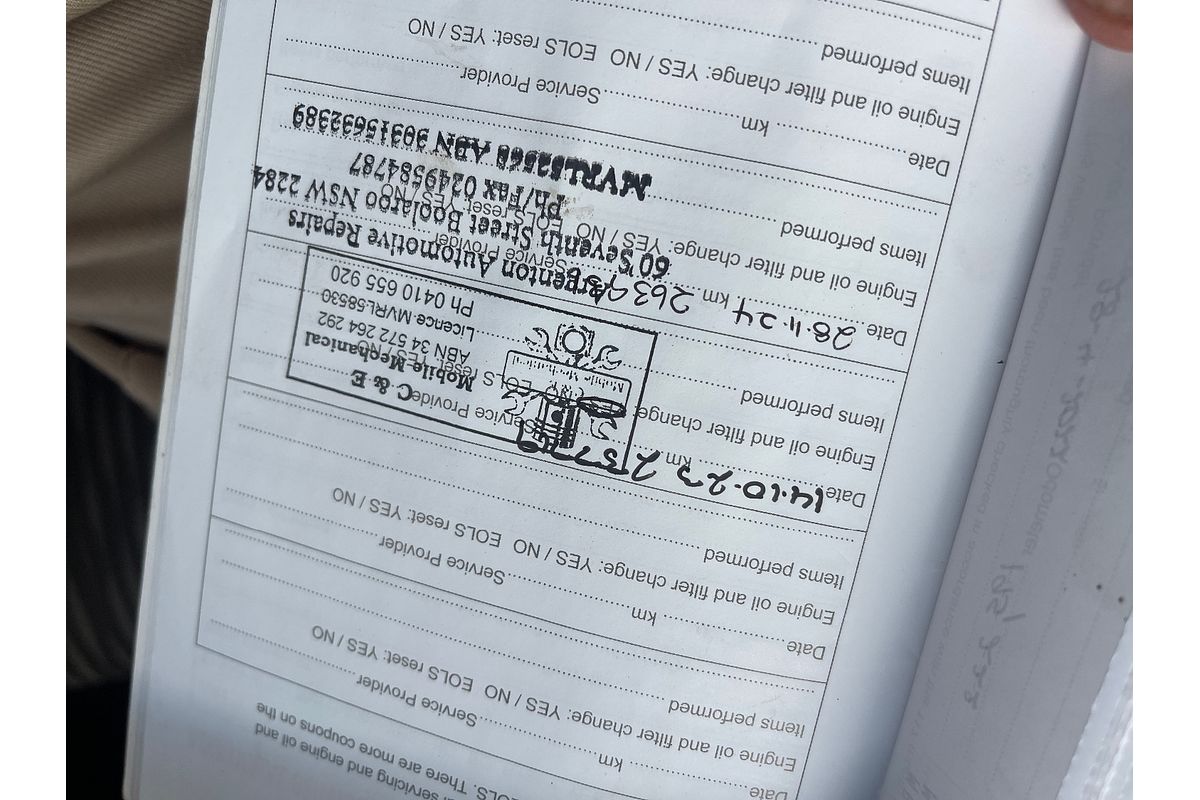 servicing and engine oil and
There are more coupons on the
Date km Service Provider
Engine oil and filter change: YES / NO EOLS reset: YES / NO
Items performed
Date km Service Provider
Engine oil and filter change: YES / NO EOLS reset: YES / NO
Items performed
Date 14.10.23 km Service Provider
C & E
Engine oil and filter change: YES / NO EOLS reset: YES / NO
Mobile Mechanical
ABN 34 572 264 292
Items performed
Licence MVRL58530
Ph 0410 655 920
Date 28.11.24 km Service Provider
Argenton Automotive Repairs
Engine oil and filter change: YES / NO EOLS reset: YES / NO
60 Seventh Street Boolaroo NSW 2284
Items performed
Ph/Fax 0249584787
ABN
Date km Service Provider
Engine oil and filter change: YES / NO EOLS reset: YES / NO
Items performed